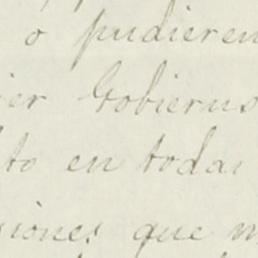 o pudieren
ier Gobierno
to en todas
siones que m